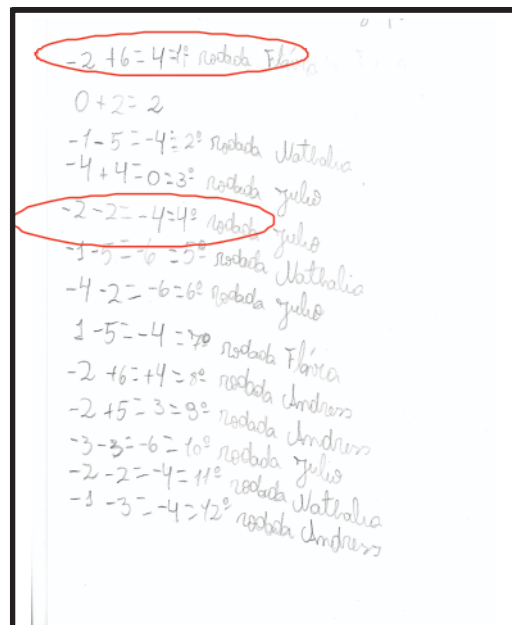 -2 +6 = 4 = 1º rodada Flávia
0 + 2 = 2
-1 - 5 = -4 = 2º rodada Nathalia
-4 + 4 = 0 = 3º rodada Julio
-2 - 2 = -4 = 4º rodada Julio
-1 - 5 = -6 = 5º rodada Nathalia
-4 - 2 = -6 = 6º rodada Julio
1 - 5 = -4 = 7º rodada Flávia
-2 +6 = +4 = 8º rodada Andress
-2 + 5 = 3 = 9º rodada Andress
-3 - 3 = -6 = 10º rodada Julio
-2 - 2 = -4 = 11º rodada Nathalia
-1 - 3 = -4 = 12º rodada Andress